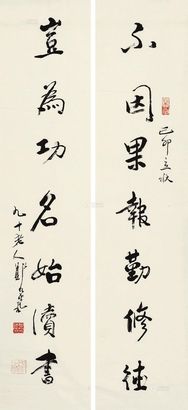 不因果報勤修德
己卯立秋
豈為功名始讀書
九十老人